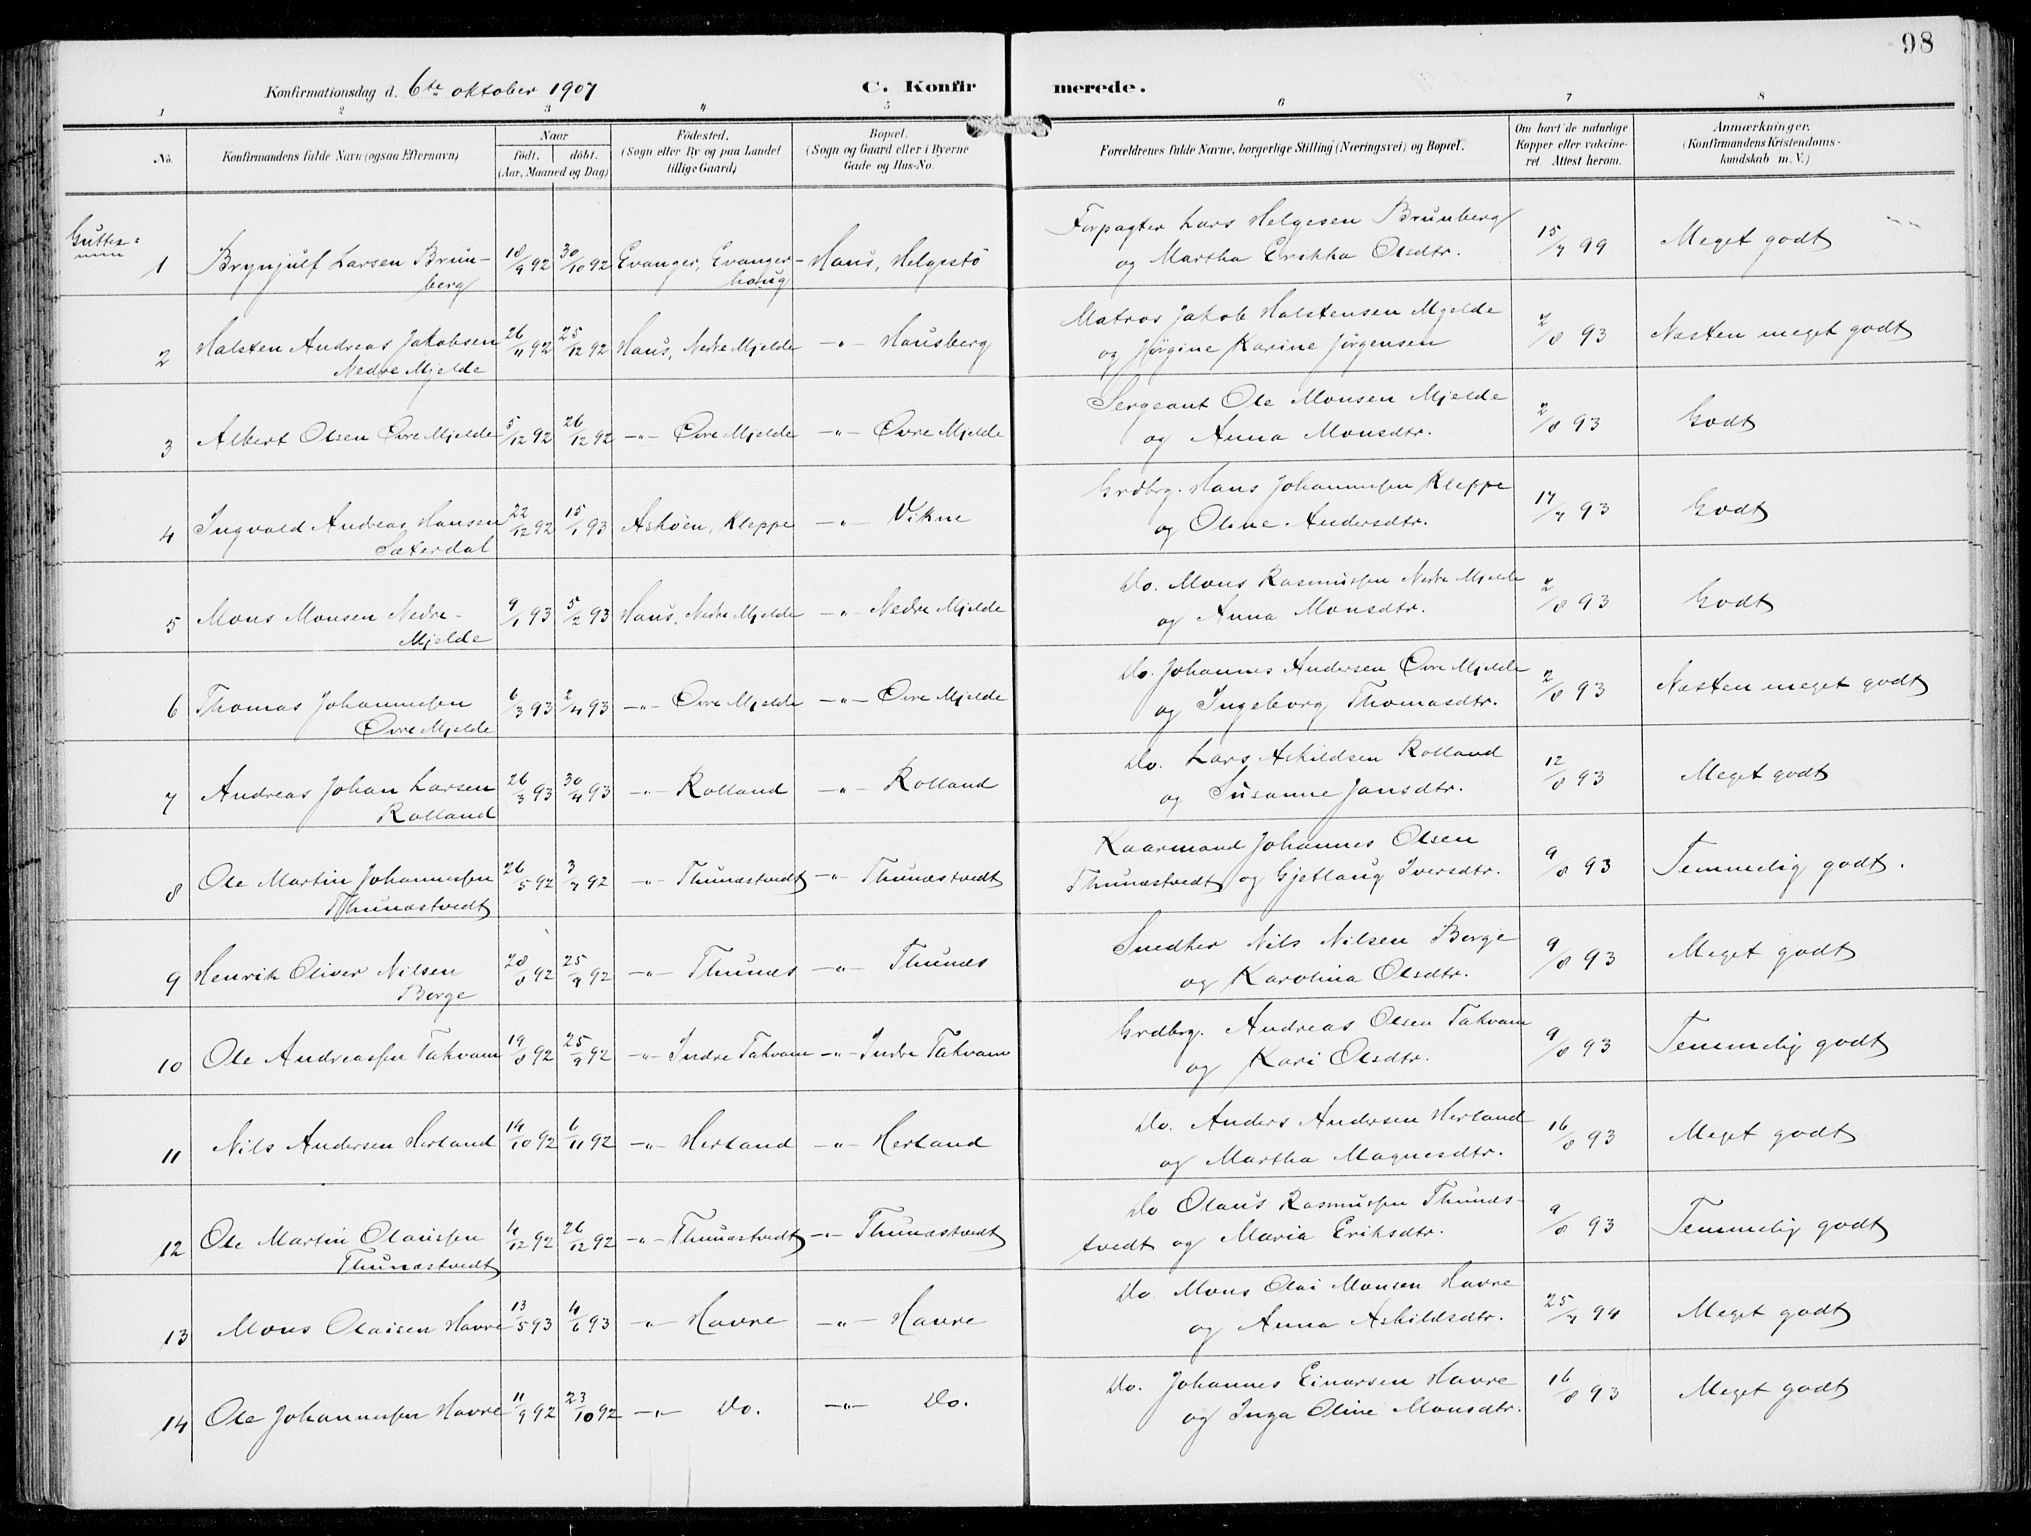 98
Konfirmationsdag d. 6te oktober 1907 C. Konfirmerede.
1 2 3 4 5 6 7 8
No. Konfirmandens fulde Navn (ogsaa Efternavn) Naar født. døbt. (Aar, Maaned og Dag) Fødested. (Sogn eller By og paa Landet tillige Gaard) Bopæl. (Sogn og Gaard eller i Byerne Gade og Hus-No. Forældrenes fulde Navne, borgerlige Stilling (Næringsvei) og Bopæl. Om havt de naturlige Kopper eller vakcineret Attest herom. Anmærkninger. (Konfirmandens Kristendomskundskab m. V.)
Gutter:
1 Brynjulf Larsen Brunberg 18/9 92 30/10 92 Evanger, Evangerhaug Haus, Helgestø Forpagter Lars Helgesen Brunberg og Martha Erikka Olsdtr. 15/7 99 Meget godt
2 Halsten Andreas Jakobsen Nedre Mjelde 26/11 92 25/12 92 Haus, Nedre Mjelde -"- Hausberg Matros Jakob Halstensen Mjelde og Jørgine Karine Jørgensen 2/8 93 Næsten meget godt
3 Albert Olsen Øvre Mjelde 5/12 92 26/12 92 -"- Øvre Mjelde -"- Øvre Mjelde Sergeant Ole Monsen Mjelde og Anna Monsdtr. 2/8 93 Godt
4 Ingvald Andreas Hansen Sæterdal 22/12 92 15/1 93 Askøen, Kleppe -"- Vikne Grdbrg. Hans Johannessen Kleppe og Oline Andersdtr. 17/7 93 Godt
5 Mons Monsen Nedre-Mjelde 9/1 93 5/2 93 Haus, Nedre Mjelde -"- Nedre Mjelde Do. Mons Rasmussen Nedre Mjelde og Anna Monsdtr. 2/8 93 Godt
6 Thomas Johannessen Øvre Mjelde 6/3 93 2/4 93 -"- Øvre Mjelde -"- Øvre Mjelde Do. Johannes Andersen Øvre Mjelde og Ingeborg Thomasdtr. 2/8 93 Næsten meget godt
7 Andreas Johan Larsen Rolland 26/3 93 30/4 93 -"- Rolland -"- Rolland Do. Lars Askildsen Rolland og Susanne Jansdtr. 12/8 93 Meget godt
8 Ole Martin Johannessen Thunæstvedt 26/5 92 3/7 92 -"- Thunæstvedt -"- Thunæstvedt Kaarmand Johannes Olsen Thunæstvedt og Gjetlaug Iversdtr. 9/8 93 Temmelig godt.
9 Henrik Oliver Nilsen Borge 28/8 92 25/9 92 -"- Thunæs -"- Thunæs Snedker Nils Nilsen Borge og Karolina Olsdtr. 9/8 93 Meget godt
10 Ole Andreassen Takvam 19/8 92 25/9 92 -"- Indre Takvam -"- Indre Takvam Grdbrg. Andreas Olsen Takvam og Kari Olsdtr. 9/8 93 Temmelig godt
11 Nils Andersen Herland 14/10 92 6/11 92 -"- Herland -"- Herland Do. Anders Andersen Herland og Martha Magnesdtr. 16/8 93 Meget godt
12 Ole Martin Olaussen Thunæstvedt 4/12 92 26/12 92 -"- Thunæstvedt -"- Thunæstvedt Do Olaus Rasmussen Thunæstvedt og Maria Eriksdtr. 9/8 93 Temmelig godt
13 Mons Olaisen Havre 13/5 93 4/6 93 -"- Havre -"- Havre Do. Mons Olai Monsen Havre og Anna Askildsdtr. 25/7 94 Meget godt
14 Ole Johannessen Havre 11/9 92 23/10 92 -"- Do. -"- Do. Do. Johannes Einarsen Havre og Inga Oline Monsdtr. 16/8 93 Meget godt